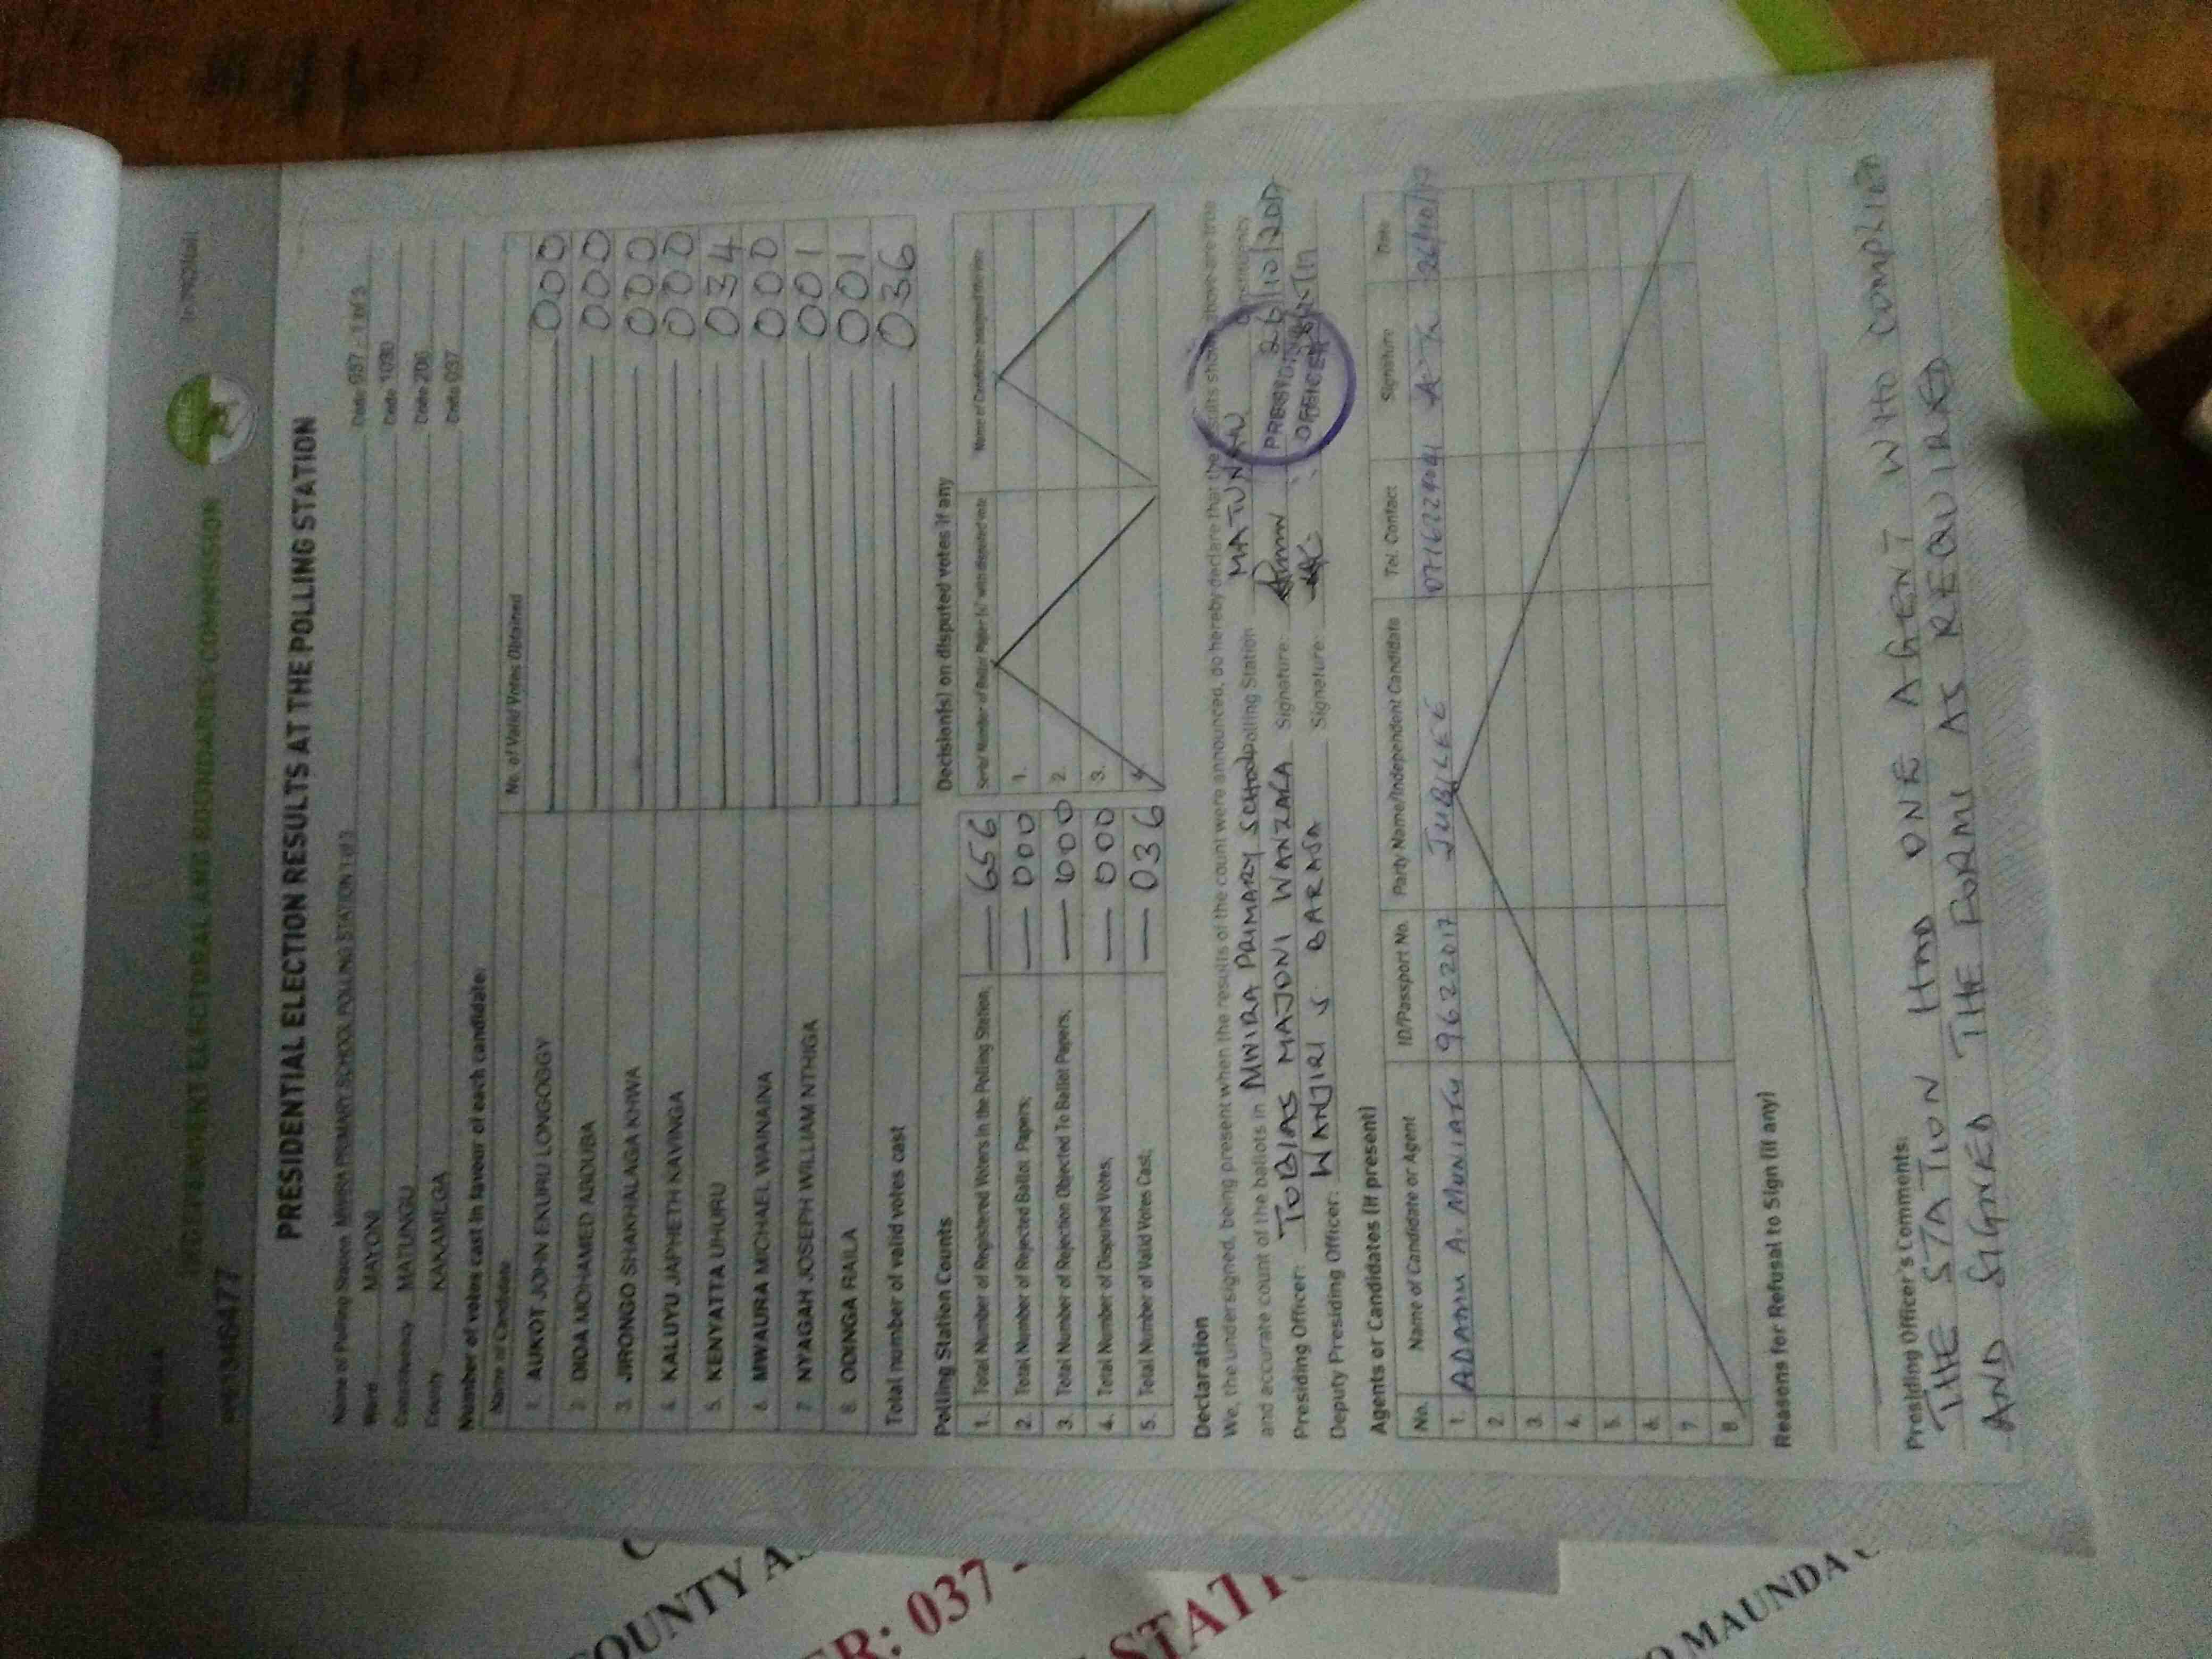 INDEPENDENT ELECTORAL AND BOUNDARIES COMMISSION
PRESIDENTIAL ELECTION RESULTS AT THE POLLING STATION
Name of Polling Station MWIRA PRIMARY SCHOOL POLLING STATION 1 of 3 Code 037 - 1 of 3
Ward MAYONI Code 1030
Constituency MATUNGU Code 206
County KAKAMEGA Code 037
Number of votes cast in favour of each candidate:
Name of Candidate No. of Valid Votes Obtained
1. AUKOT JOHN EKURU LONGOGGY 000
2. DIDA MOHAMED ABDUBA 000
3. JIRONGO SHAKHALAGA KHWA 000
4. KALUYU JAPHETH KAVINGA 000
5. KENYATTA UHURU 034
6. MWAURA MICHAEL WAINAINA 000
7. NYAGAH JOSEPH WILLIAM NTHIGA 001
8. ODINGA RAILA 001
Total number of valid votes cast 036
Polling Station Counts
1. Total Number of Registered Voters in the Polling Station; 656
2. Total Number of Rejected Ballot Papers; 000
3. Total Number of Rejection Objected To Ballot Papers; 000
4. Total Number of Disputed Votes; 000
5. Total Number of Valid Votes Cast; 036
Decision(s) on disputed votes if any
Serial Number of Ballot Paper (s) with disputed vote Name of Candidate assigned the vote
1.
2.
3.
4.
Declaration
We, the undersigned, being present when the results of the count were announced, do hereby declare that the results shown above are true
and accurate count of the ballots in MWIRA PRIMARY SCHOOL Polling Station MATUNGU Constituency
Presiding Officer: TOBIAS MAJONI WANZALA Signature: 26/10/2017
Deputy Presiding Officer: WANJIRI S. BARASA Signature:
PRESIDING
OFFICER
Agents or Candidates (if present)
No. Name of Candidate or Agent ID/Passport No. Party Name/Independent Candidate Tel. Contact Signature Date
1. ADAMU A. 96222017 JUBILEE 26/10/17
2.
3.
4.
5.
6.
7.
8.
Reasons for Refusal to Sign (if any)
Presiding Officer's Comments:
THE STATION HAD ONE AGENT WHO COMPLIED
AND SIGNED THE FORM AS REQUIRED
COUNTY
037
STATI
MAUNDA